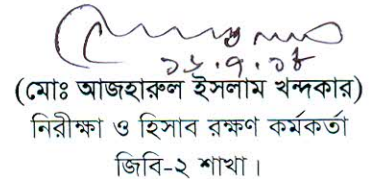 ১৬.৭.১৮
(মোঃ আজহারুল ইসলাম খন্দকার)
নিরীক্ষা ও হিসাব রক্ষণ কর্মকর্তা
জিবি-২ শাখা।